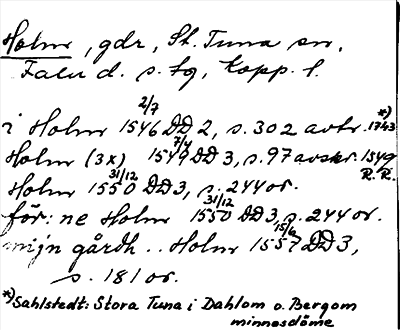 Holm, gdr, St. Tuna sn,
Falu d. s. tg, Kopp. l.
2/7 *)
i Holm 1546 DD 2, s. 302 avtr. 1743
7/4
Holm (3x) 1549 DD 3, s. 97 avskr. 1549 R.R.
31/12
Holm 1550 DD3, s. 244 or.
31/12
för: ne Holm 1550 DD3, s. 244 or.
15/6
mijn gårdh .. Holm 1557 DD3,
s. 181 or.
*) Sahlstedt: Stora Tuna i Dahlom o. Bergom
minnesdöme